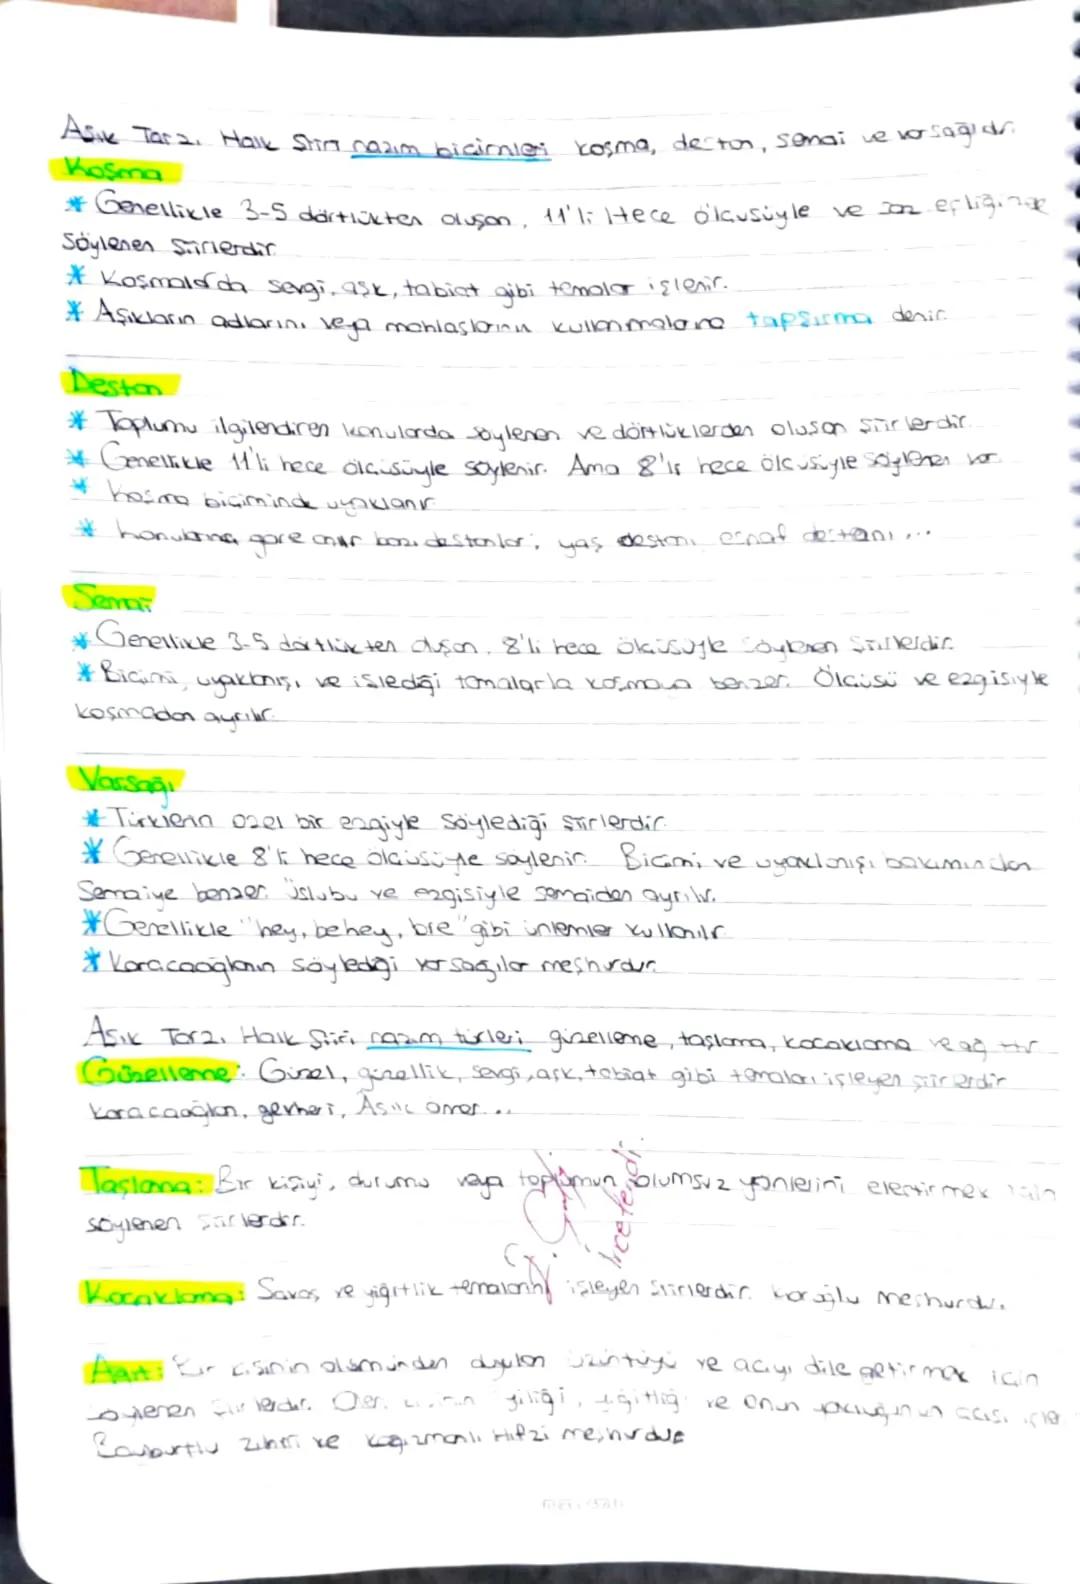 Aşık Tarzı Halk Şiiri nazım biçimleri koşma, destan, semai ve varsağıdır.
Koşma
* Genellikle 3-5 dörtlükten oluşan, 11'li Hece ölçüsüyle ve saz eşliğinde
söylenen şiirlerdir.
* Koşmalarda sevgi, aşk, tabiat gibi temalar işlenir.
* Aşıkların adlarını veya mahlaslarını kullanmalarına tapşırma denir
Destan
* Toplumu ilgilendiren konularda söylenen ve dörtlüklerden oluşan şiirlerdir.
* Genellikle 11'li hece ölçüsüyle söylenir. Ama 8'li hece ölçüsüyle söylenen var.
* Koşma biçiminde uyaklanır
* Konularına göre bazı destanlar; yaş destanı esnaf destanı...
Semai
* Genellikle 3-5 dörtlükten oluşan, 8'li hece ölçüsüyle söylenen şiirlerdir.
* Biçimi, uyaklanışı, ve işlediği temalarla koşmaya benzer. Ölçüsü ve ezgisiyle
koşmadan ayrılır.
Varsağı
* Türklerin özel bir ezgiyle söylediği şiirlerdir.
* Genellikle 8'li hece ölçüsüyle söylenir. Biçimi ve uyaklanışı bakımından
Semaiye benzer. Üslubu ve ezgisiyle semaiden ayrılır.
* Genellikle "hey, behey, bre" gibi ünlemler kullanılır
* Karacaoğlanın söylediği varsağılar meşhurdur.
Aşık Tarzı Halk Şiiri nazım türleri güzelleme, taşlama, kocaklama ve ağıttır
Güzelleme: Güzel, güzellik, sevgi, aşk, tabiat gibi temaları işleyen şiirlerdir
Karacaoğlan, gevheri, Aşık ömer...
Taşlama: Bir kişiyi, durumu veya toplumun olumsuz yönlerini eleştirmek için
söylenen şiirlerdir.
İncelendi.
Kocaklama: Savaş ve yiğitlik temalarını işleyen şiirlerdir. Köroğlu meşhurdur.
Ağıt: Bir kişinin ölümünden duyulan üzüntüyü ve acıyı dile getirmek için
söylenen şiirlerdir. Ölen kişinin iyiliği, yiğitliği ve onun yokluğunun acısı
Bayburtlu Zihni ve Kağızmanlı Hıfzi meşhurdur